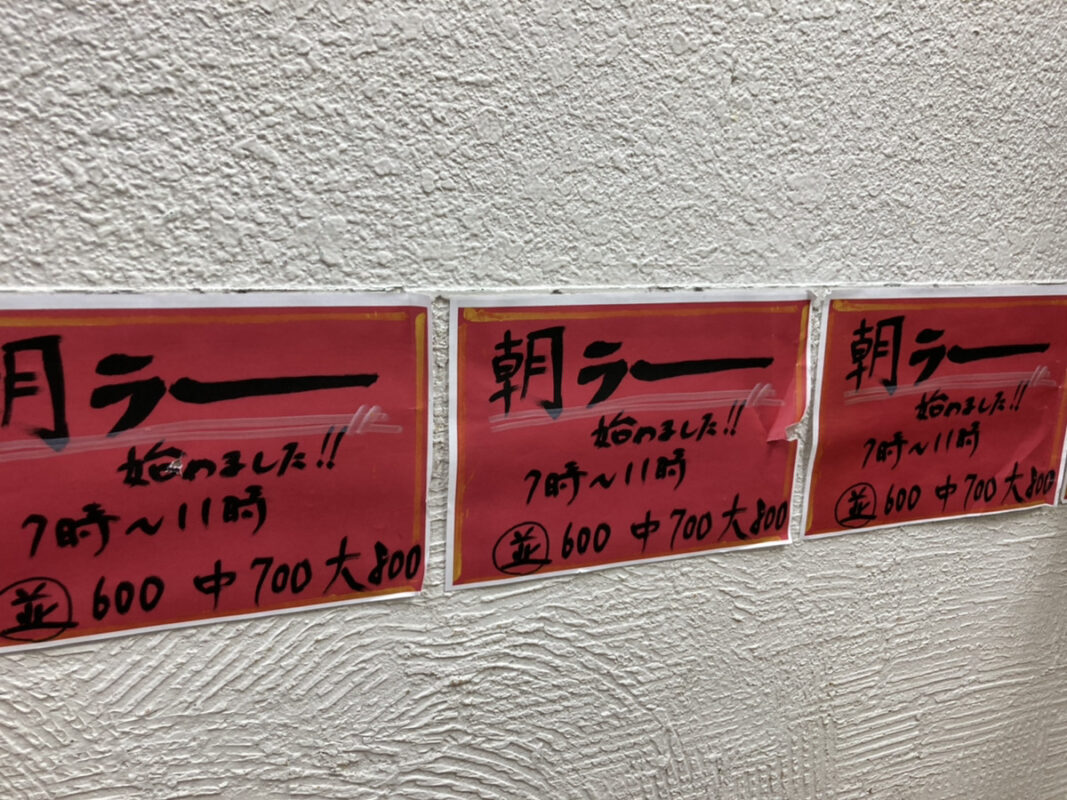 朝ラー
始めました!!
7時~11時
並 600 中 700 大 800
朝ラー
始めました!!
7時~11時
並 600 中 700 大 800
朝ラー
始めました!!
7時~11時
並 600 中 700 大 800